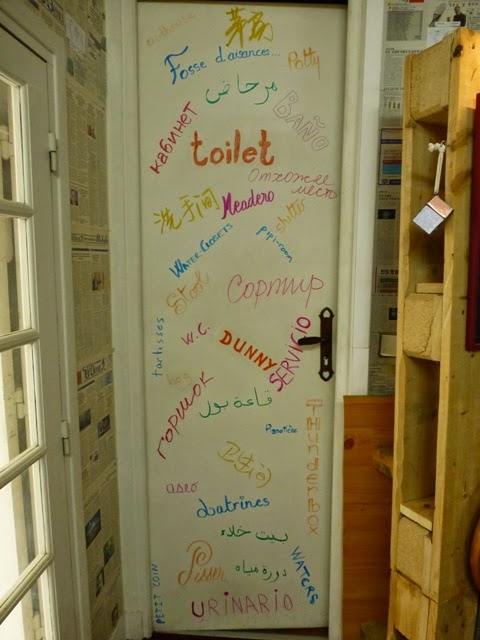 outhouse
茅房
Fosse d'aisances...
Potty
مرحاض
BAÑO
кабинет
toilet
Отхожее
место
洗手间
Meadero
shitter
WATER CLOSETS
pipi-room
Stool
Сортир
W.C.
tartisses
DUNNY
SERVICIO
bog
горшок
قاعة بور
THUNDERBOX
aseo
Latrines
بيت خلاء
Pisser
دورة مياه
WATERS
PETIT COIN
URINARIO